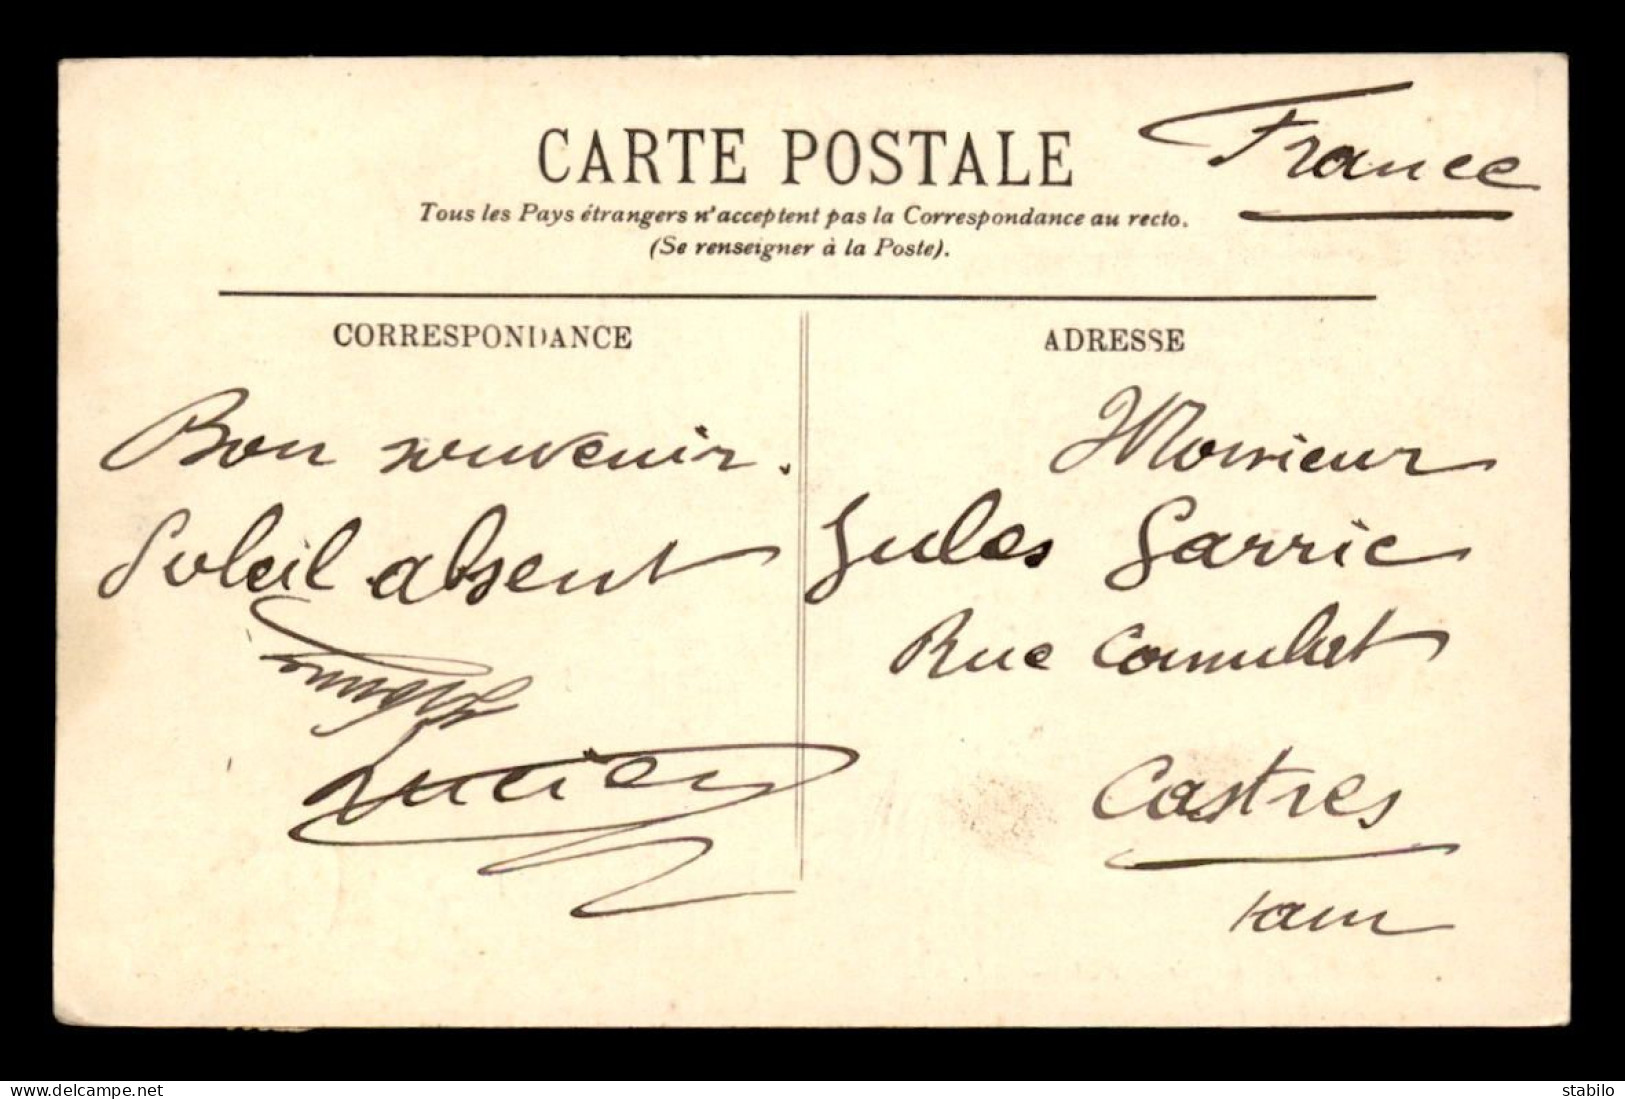 CARTE POSTALE
France
Tous les Pays étrangers n'acceptent pas la Correspondance au recto.
(Se renseigner à la Poste).
CORRESPONDANCE
Bon souvenir.
Soleil absent
Lucien
ADRESSE
Monsieur
Jules Garric
Rue
Castres
Tarn
www.delcampe.net
stabilo